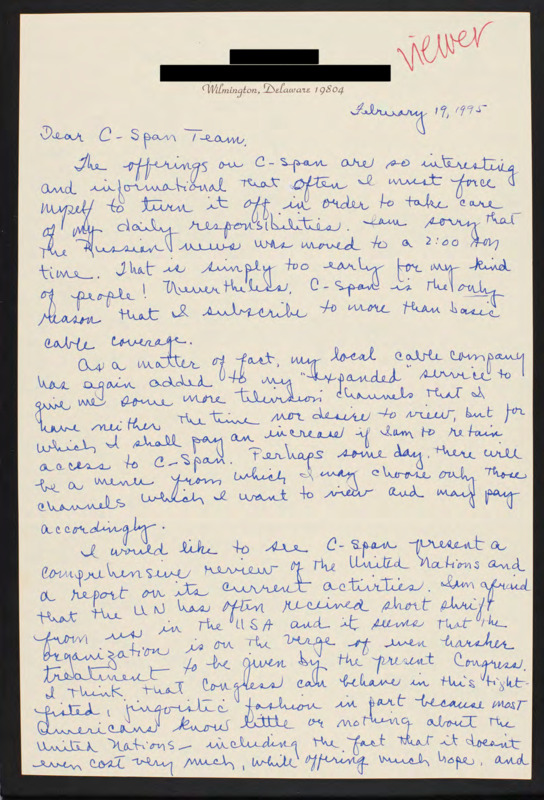 viewer
Wilmington, Delaware 19804
February 19, 1995
Dear C-Span Team,
The offerings on C-Span are so interesting
and informational that often I must force
myself to turn it off in order to take care
of my daily responsibilities. I am sorry that
the Russian news was moved to a 2:00
time. That is simply too early for my kind
of people! Nevertheless, C-Span is the only
reason that I subscribe to more than basic
cable coverage.
As a matter of fact, my local cable company
has again added to my "expanded" service to
give me some more television channels that I
have neither the time nor desire to view, but for
which I shall pay an increase if I am to retain
access to C-Span. Perhaps some day, there will
be a menu from which I may choose only those
channels which I want to view and may pay
accordingly.
I would like to see C-Span present a
comprehensive review of the United Nations and
a report on its current activities. I am afraid
that the UN has often received short shrift
from us in the USA and it seems that the
organization is on the verge of even harsher
treatment to be given by the present Congress.
I think that Congress can behave in this tight-
fisted, jingoistic fashion in part because most
Americans know little or nothing about the
United Nations - including the fact that it doesn't
even cost very much, while offering much hope, and